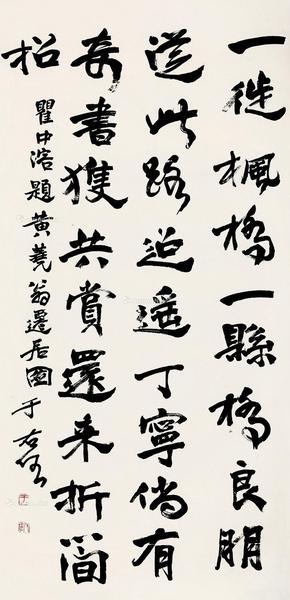 一徙楓橋一縣橋良朋
從此路迢遥丁寧倘有
奇書獲共賞還来折簡
招
瞿中溶題黄蕘翁遷居圖 于右任